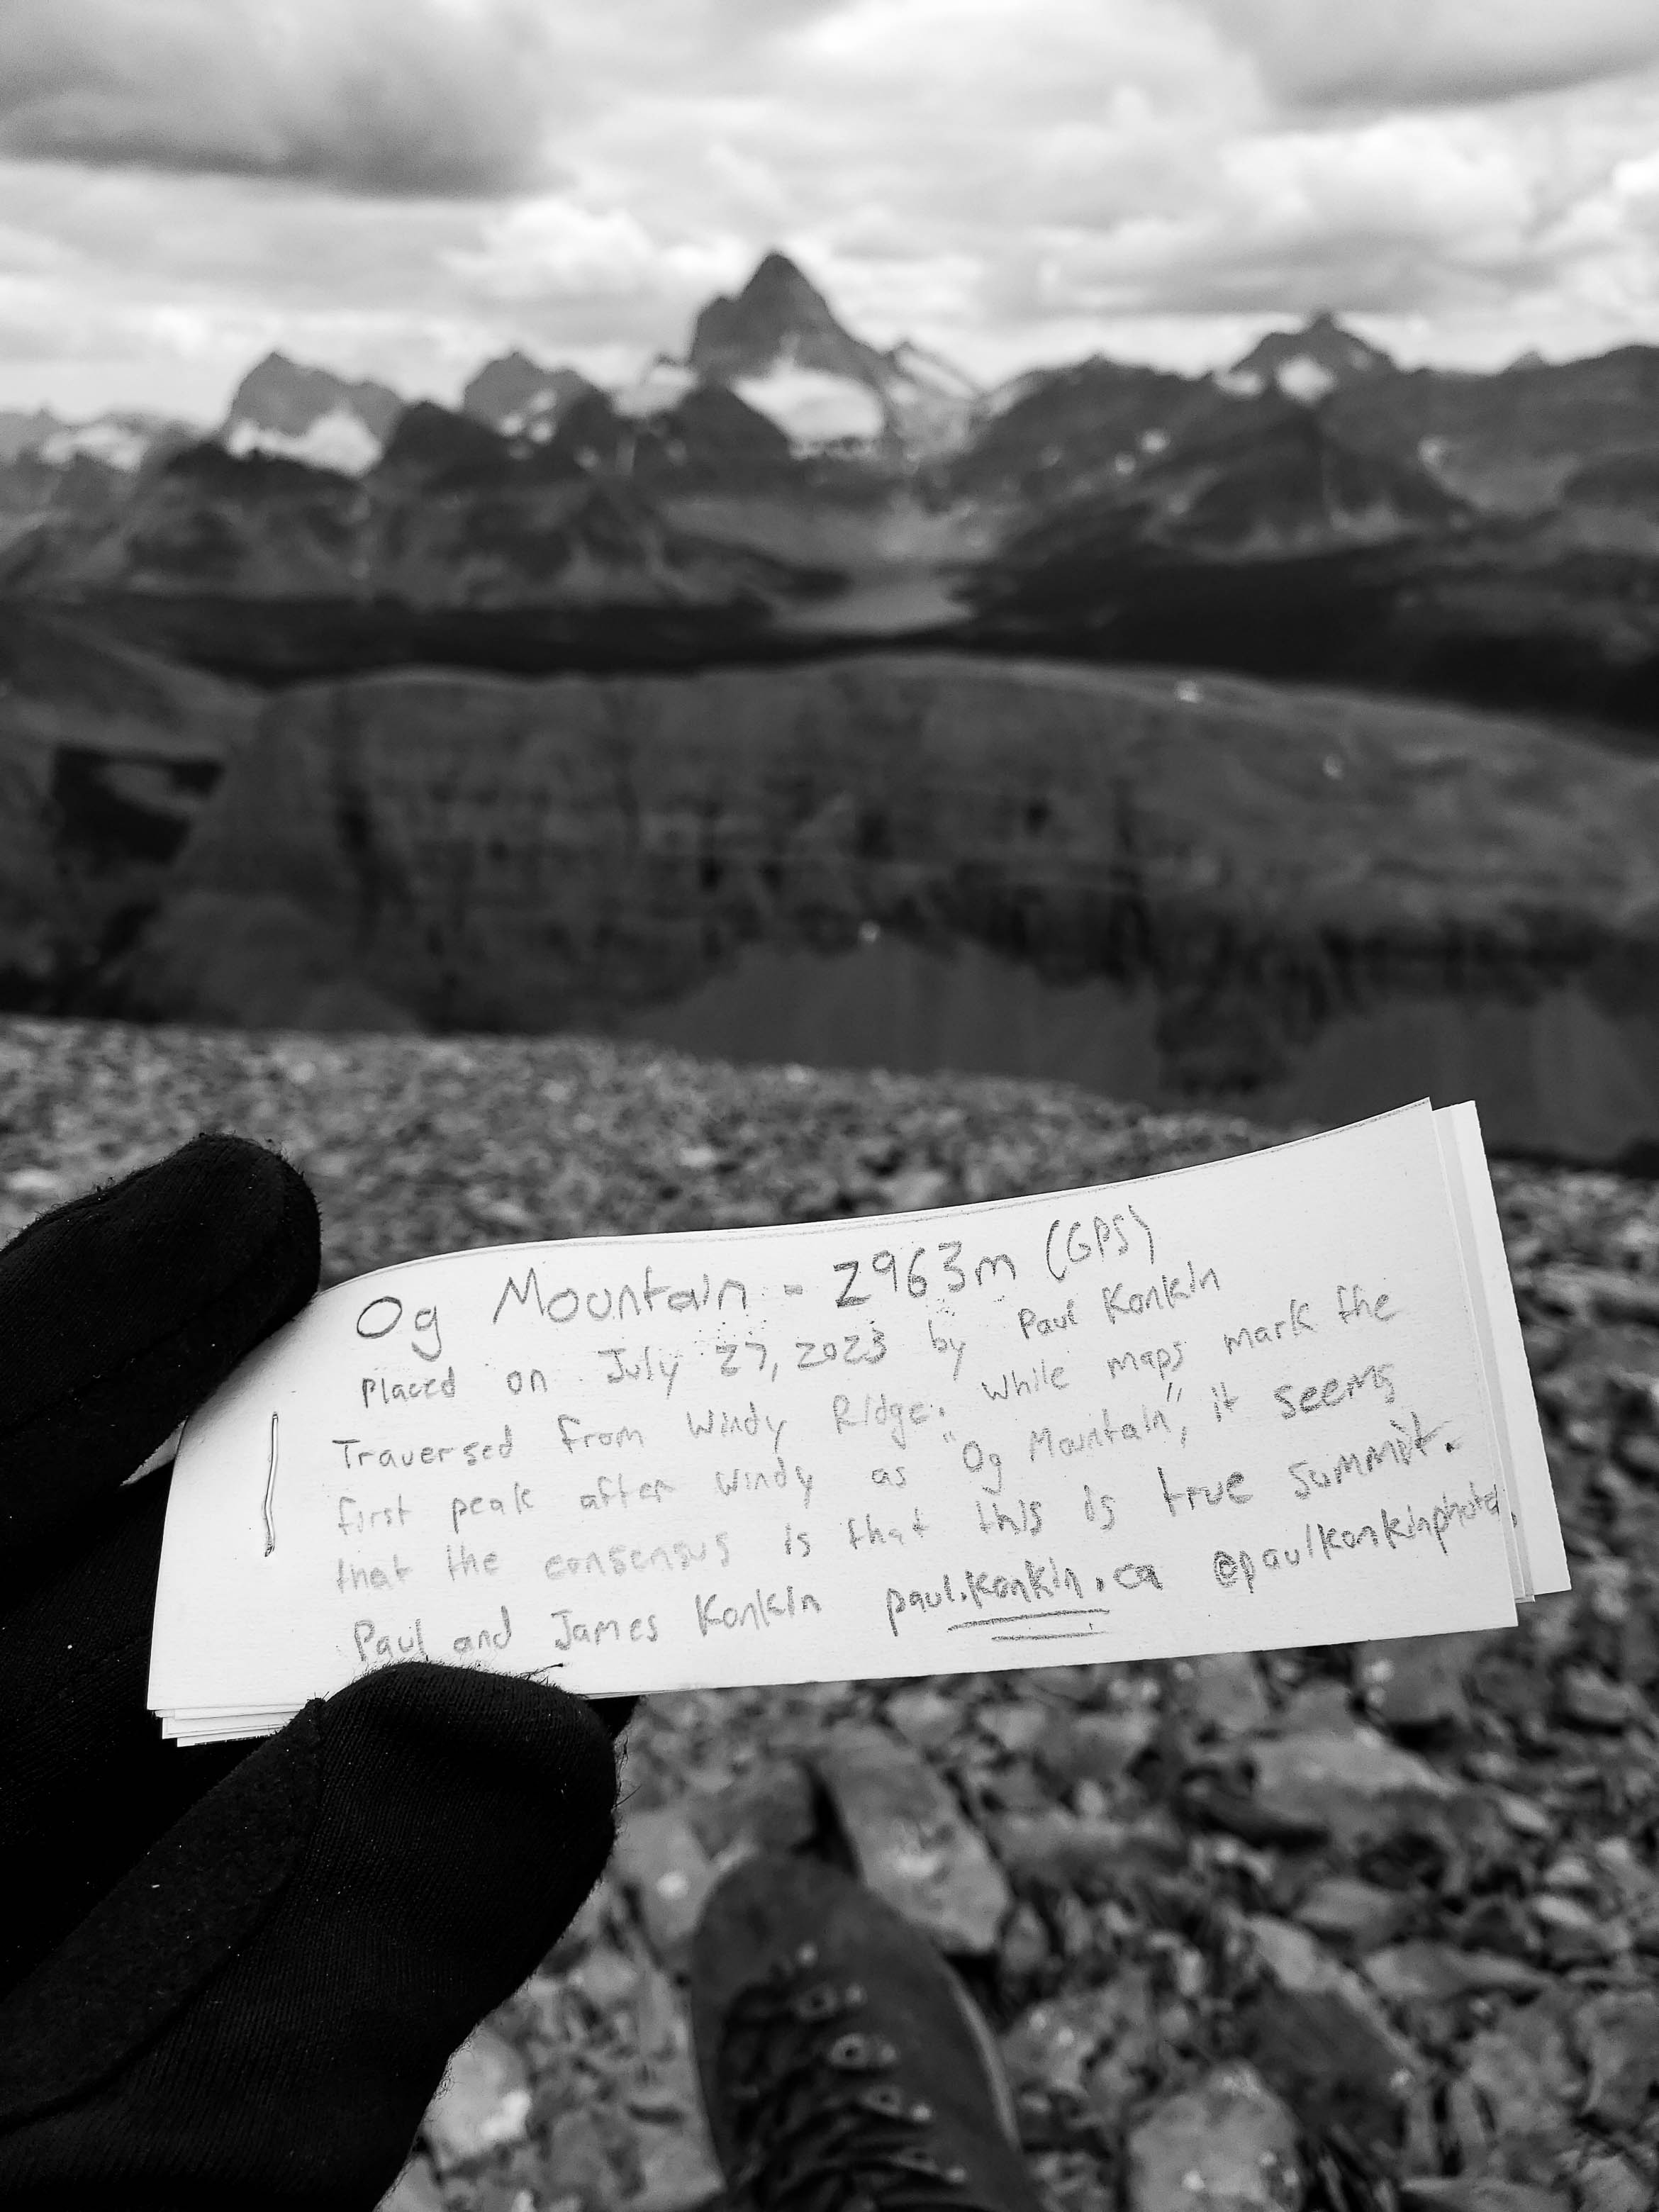 Og Mountain - 2963m (GPS)
Placed on July 27, 2023 by Paul Konkin
Traversed from Windy Ridge. While maps mark the
first peak after Windy as "Og Mountain", it seems
that the consensus is that this is true summit.
Paul and James Konkin paul.konkin.ca @paulkonkinphoto